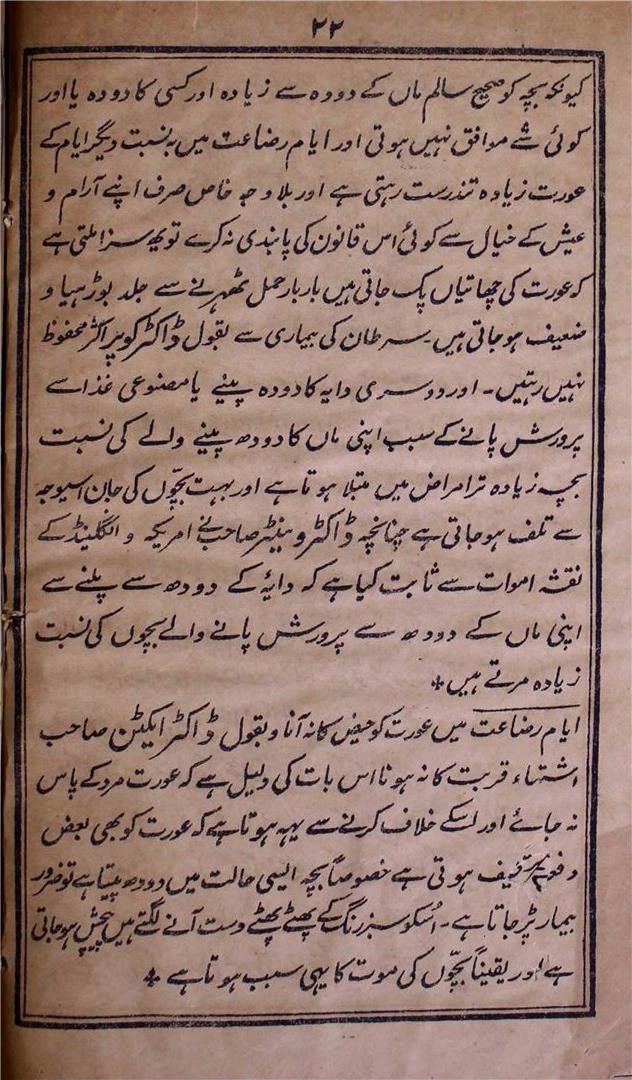 ۲۲
کیونکہ بچہ کو صحیح سالم ماں کے دودہ سے زیادہ اور کسی کا دودہ یا اور
کوئی شے موافق نہیں ہوتی اور ایام رضاعت میں بہ نسبت دیگر ایام کے
عورت زیادہ تندرست رہتی ہے اور بلا وجہ خاص صرف اپنے آرام و
عیش کے خیال سے کوئی اس قانون کی پابندی نہ کرے تو یہ سزا ملتی ہے
کہ عورت کی چھاتیاں پک جاتی ہیں بار بار حمل ٹھہرنے سے جلد بوڑہیا و
ضعیف ہو جاتی ہیں۔ سرطان کی بیماری سے بقول ڈاکٹر کوپر اکثر محفوظ
نہیں رہتیں۔ اور دوسری دایہ کا دودہ پینے یا مصنوعی غذا سے
پرورش پانے کے سبب اپنی ماں کا دودھ پینے والے کی نسبت
بچہ زیادہ تر امراض میں مبتلا ہوتا ہے اور بہت بچّوں کی جان اسیوجہ
سے تلف ہو جاتی ہے چنانچہ ڈاکٹر صاحب نے امریکہ و انگلینڈ کے
نقشہ اموات سے ثابت کیا ہے کہ دایۂ کے دودھ سے پلنے سے
اپنی ماں کے دودھ سے پرورش پانے والے بچوں کی نسبت
زیادہ مرتے ہیں *
ایام رضاعت میں عورت کو حیض کا نہ آنا و بقول ڈاکٹر ایکٹن صاحب
اشتہاء قربت کا نہ ہونا اس بات کی دلیل ہے کہ عورت مرد کے پاس
نہ جائے اور اسکے خلاف کرنے سے یہہ ہوتا ہے کہ عورت کو بھی بعض
دفعہ ہوتی ہے خصوصاً بچہ ایسی حالت میں دودھ پیتا ہے تو ضرور
بیمار پڑ جاتا ہے۔ اُسکو سبز رنگ کے پھٹے پھٹے دست آنے لگتے ہیں پیچش ہو جاتی
ہے اور یقیناً بچّوں کی موت کا یہی سبب ہوتا ہے *